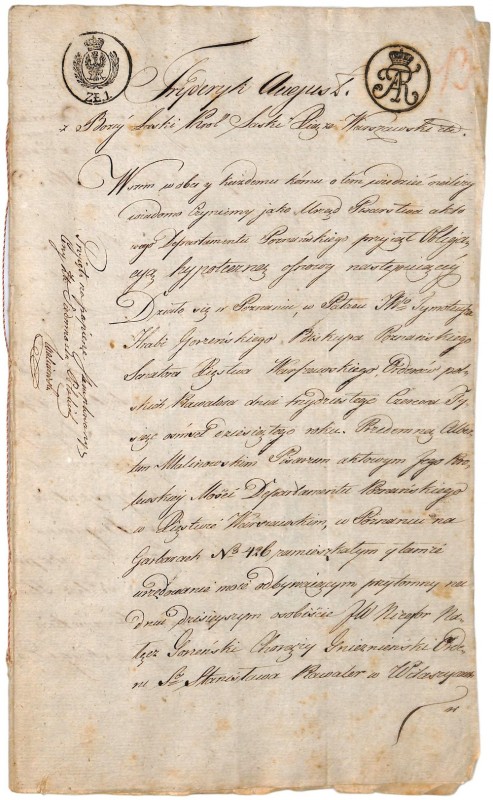 ZŁ.1.
Fryderyk August.
z Bozej Łaski Krol Saski Xiąże Warszawski etc.
Wszem w obec y każdemu komu o tem wiedzieć należy
wiadomo Czyniemy jako Urząd Pisarstwa akto
wego Departamentu Poznańskiego przyjął Obliga
cyą hypoteczną osnowy następuiącey
Działo się w Poznaniu, w Pałacu JWo Tymoteusza
Hrabi Gorzeńskiego, Biskupa Poznańskiego
Senatora Xięstwa Warszawskiego Orderów pol
skich Kawalera dnia trzydziestego Czerwca Ty
siąc ośmset dziesiątego roku. Przedemną Alber
tem Malinowskim Pisarzem aktowym Jego Kro
lewskiey Mości Departamentu Poznańskiego
w Xięstwie Warszawskim, w Poznaniu na
Garbarach No 426 zamieszkałym y tamże
urzędowanie swoie odbywaiącym przytomny na
dniu dzisieyszym osobiście JW Nizefor Na
łęcz Gorzeński Chorąży Gnieznieński Orde
ru So Stanisława Kawaler w Włoszczeiow
Malinowski
13